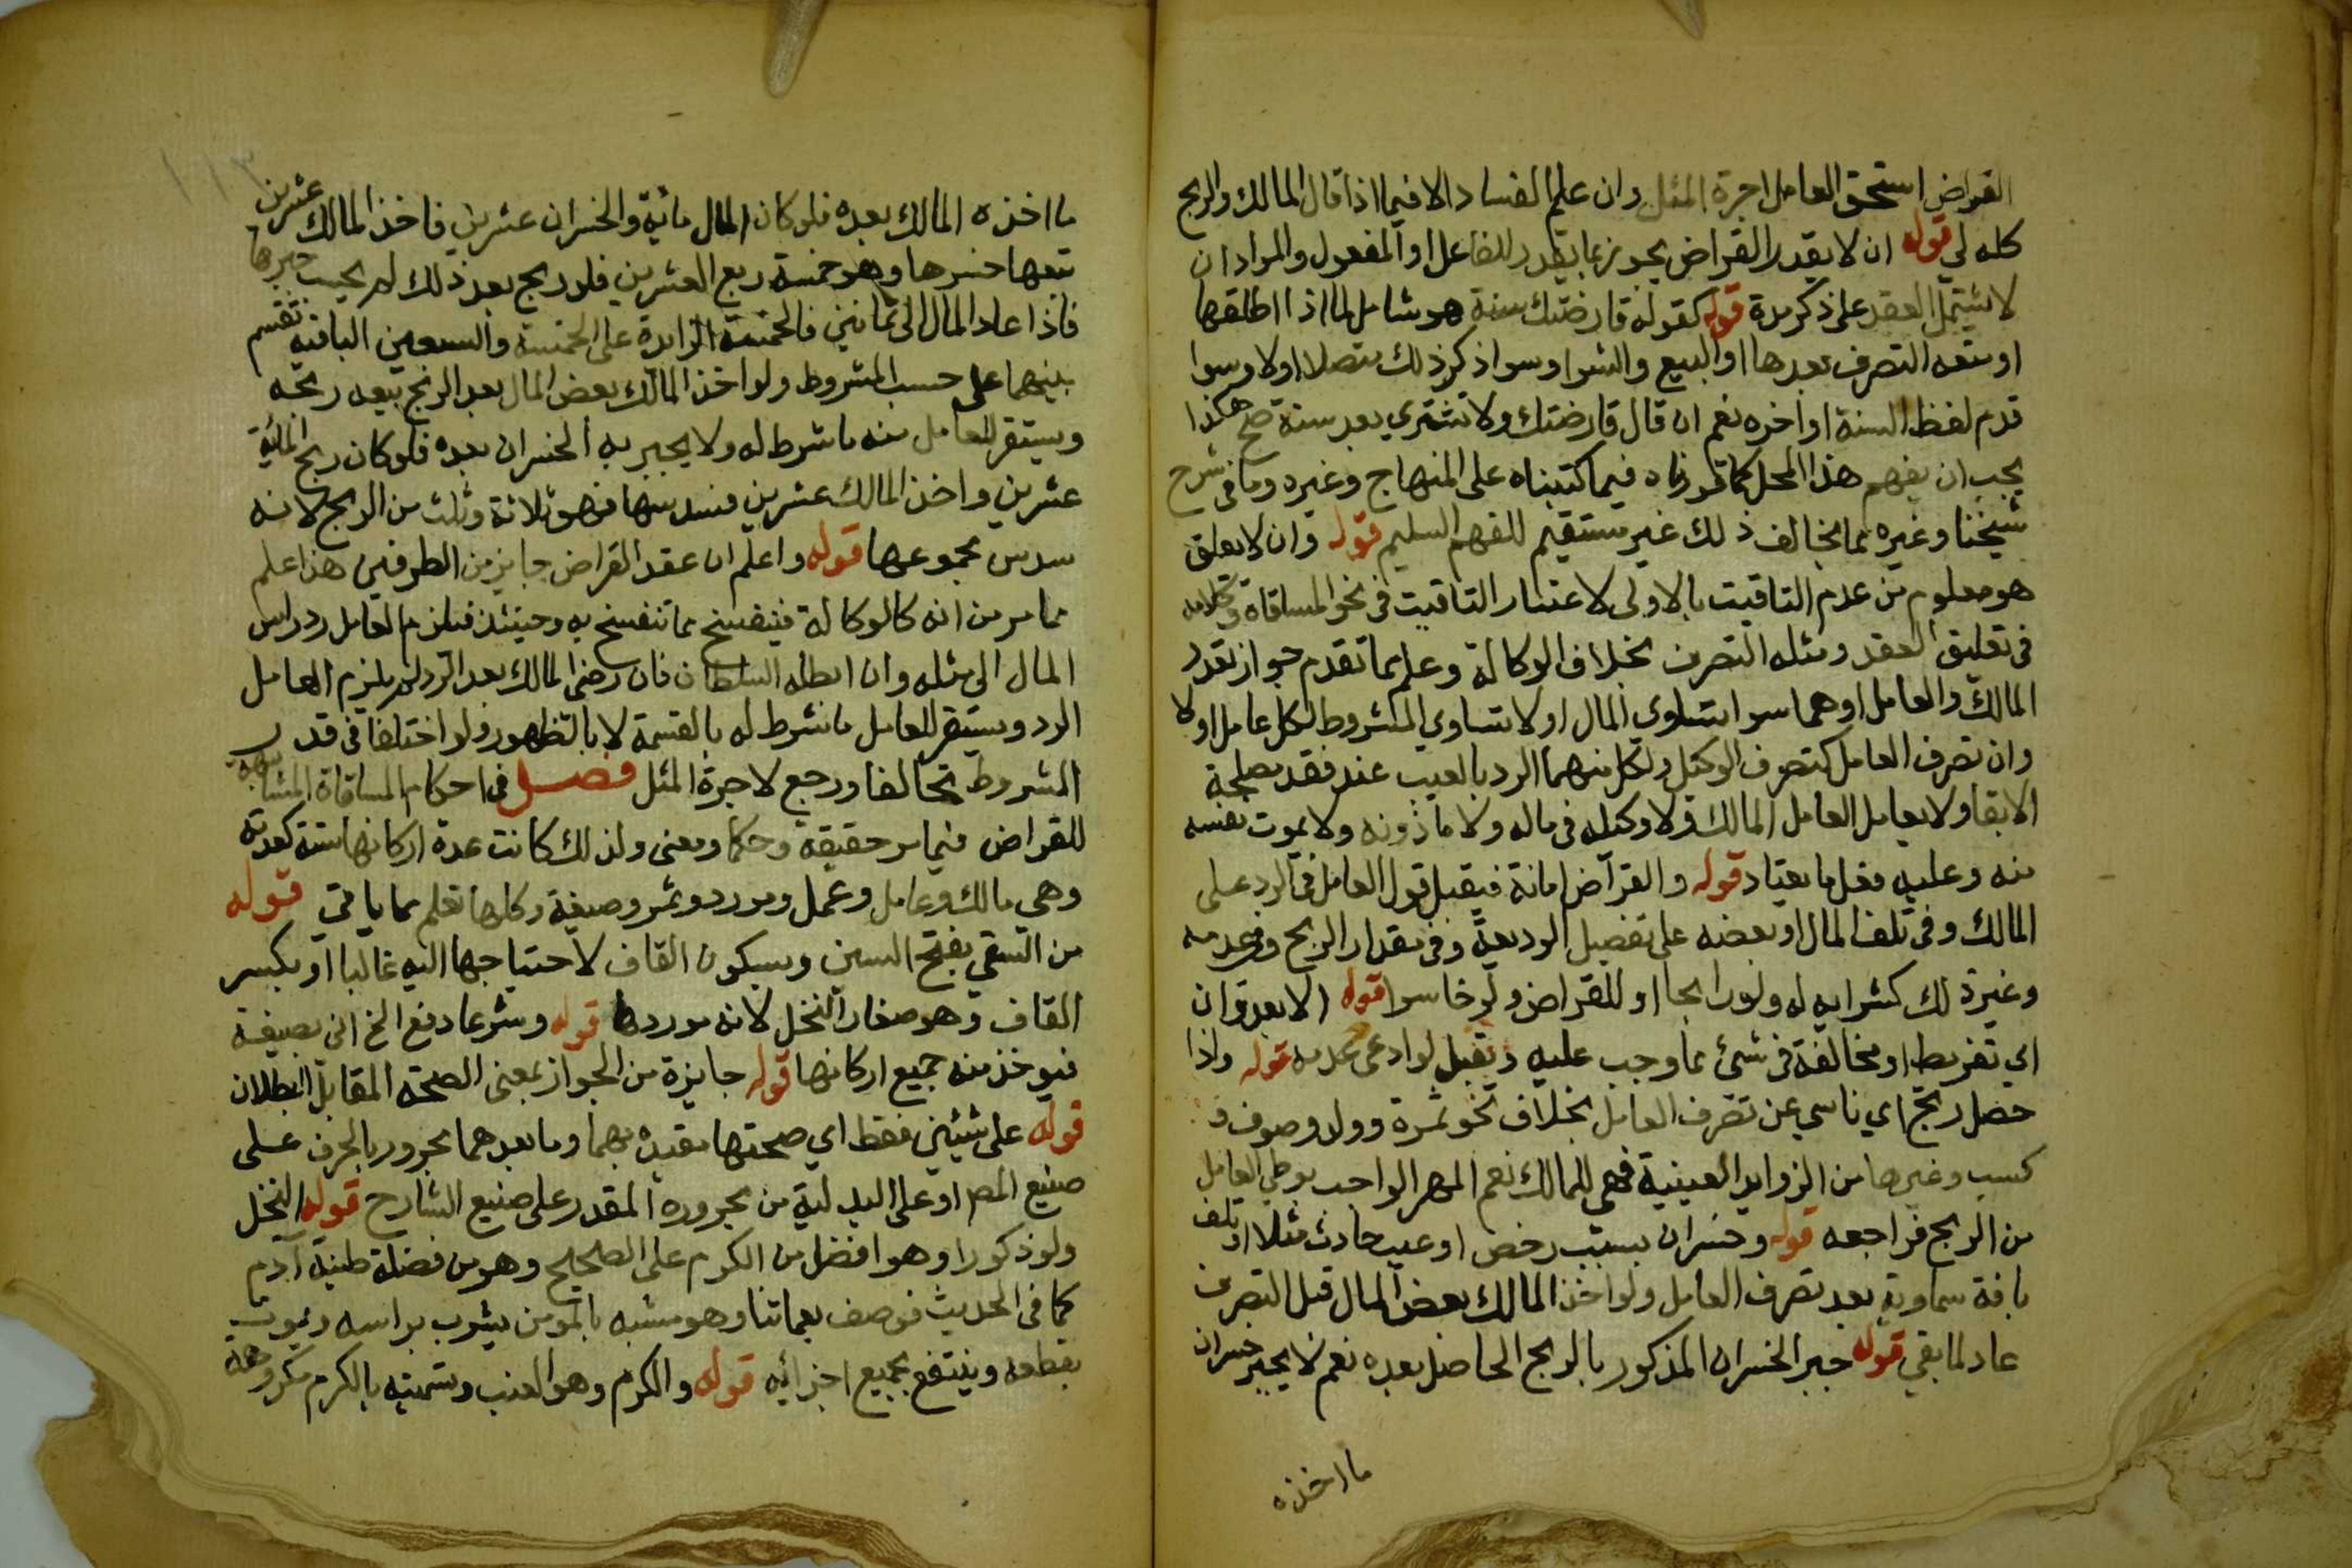 القراض استحق العامل اجرة المثل وان علم الفساد الا فيما اذا قال المالك والربح
كله لي قوله ان لا يقدر القراض يجوز بنا يقدر للفاعل او المفعول والمراد ان
لا يشتمل العقد على ذكر مدة قوله كقوله قارضتك سنة هو شامل لما اذا اطلقها
او منعه التصرف بعدها او البيع والشرا وسوا ذكر ذلك متصلا او لا وسوا
قدم لفظ السنة او اخره نعم ان قال قارضتك ولا تشتري بعد سنة صح هكذا
يجب ان يفهم هذا المحل كما قررناه فيما كتبناه على المنهاج وغيره وما في شرح
شيخنا وغيره مما يخالف ذلك غير مستقيم للفهم السليم قوله وان لا يعلق
هو معلوم من عدم التاقيت بالاولى لاغتفار التاقيت في نحو المساقاة وكلامه
في تعليق العقد ومثله التصرف بخلاف الوكالة وعلم مما تقدم جواز تعدد
المالك والعامل او هما سوا تساوي المال او لا تساوي المشروط لكل عامل او لا
وان تصرف العامل كتصرف الوكيل ولكل منهما الرد بالعيب عند فقد مصلحة
الابقا ولا يعامل العامل المالك ولا وكيله في ماله ولا ماذونه ولا يموت نفسه
منه وعليه فعل ما يعتاد قوله والقراض امانة فيقبل قول العامل في الرد على
المالك وفي تلف المال او بعضه على تفصيل الوديعة وفي مقدار الربح وفي عدمه
وغير ذلك كشرايه له ولو رابحا او للقراض ولو خاسرا قوله الا بعدوان
اي تفريط او مخالفة في شيء مما وجب عليه ويقبل لو ادعى عدمه قوله واذا
حصل ربح اي ناشي عن تصرف العامل بخلاف نحو ثمرة وولد وصوف و
كسب وغيرها من الزوايد العينية فهي للمالك نعم المهر الواجب بوطي العامل
من الربح فراجعه قوله وخسران بسبب رخص او عيب حادث مثلا او تلف
بافة سماوية بعد تصرف العامل ولو اخذ المالك بعض المال قبل التصرف
عاد لما بقي قوله جبر الخسران المذكور بالربح الحاصل بعده نعم لا يجبر خسران
ما اخذه
١١٣
ما اخذه المالك بعده فلو كان المال مائة والخسران عشرين فاخذ المالك عشرين
تبعها خسرها وهو خمسة ربع العشرين فلو ربح بعد ذلك لم يجب جبرها
فاذا عاد المال الى ثمانين فالخمسة الزايدة على الخمسة والسبعين الباقية تقسم
بينهما على حسب المشروط ولو اخذ المالك بعض المال بعد الربح تبعه ربحه
ويستقر للعامل منه ما شرط له ولا يجبر به الخسران بعده فلو كان ربح المائة
عشرين واخذ المالك عشرين فسدسها فهو ثلاثة وثلث من الربح لانه
سدس مجموعها قوله واعلم ان عقد القراض جايز من الطرفين هذا علم
مما مر من انه كالوكالة فينفسخ بما تنفسخ به وحينئذ فيلزم العامل رد راس
المال الى مثله وان ابطله السلطان فان رضي المالك بعد الرد لم يلزم العامل
الرد ويستقر للعامل ما شرط له بالقسمة لا بالظهور ولو اختلفا في قدر
المشروط تحالفا ورجع لاجرة المثل فصل في احكام المساقاة المشابهة
للقراض فيما مر حقيقة وحكما ومعنى ولذلك كانت عدة اركانها ستة كعدته
وهي مالك وعامل وعمل ومورد وثمر وصيغة وكلها تعلم مما ياتي قوله
من السقي بفتح السين وبسكون القاف لاحتياجها اليه غالبا او بكسر
القاف وهو صغار النخل لانه موردها قوله وشرعا دفع الخ اي بصيغة
فيوخذ منه جميع اركانها قوله جايزة من الجواز بمعنى الصحة المقابل البطلان
قوله على شيئين فقط اي صحتها مقيدة بهما وما بعدهما مجرور بالحرف على
صنيع المص او على البدلية من مجروره المقدر على صنيع الشارح قوله النخل
ولو ذكورا وهو افضل من الكرم على الصحيح وهو من فضلة طينة آدم
كما في الحديث فوصف بعماتنا وهو مشبه بالمومن يشرب براسه ويموت
بقطعه وينتفع بجميع اجزائه قوله والكرم وهو العنب وتسميته بالكرم مكروهة